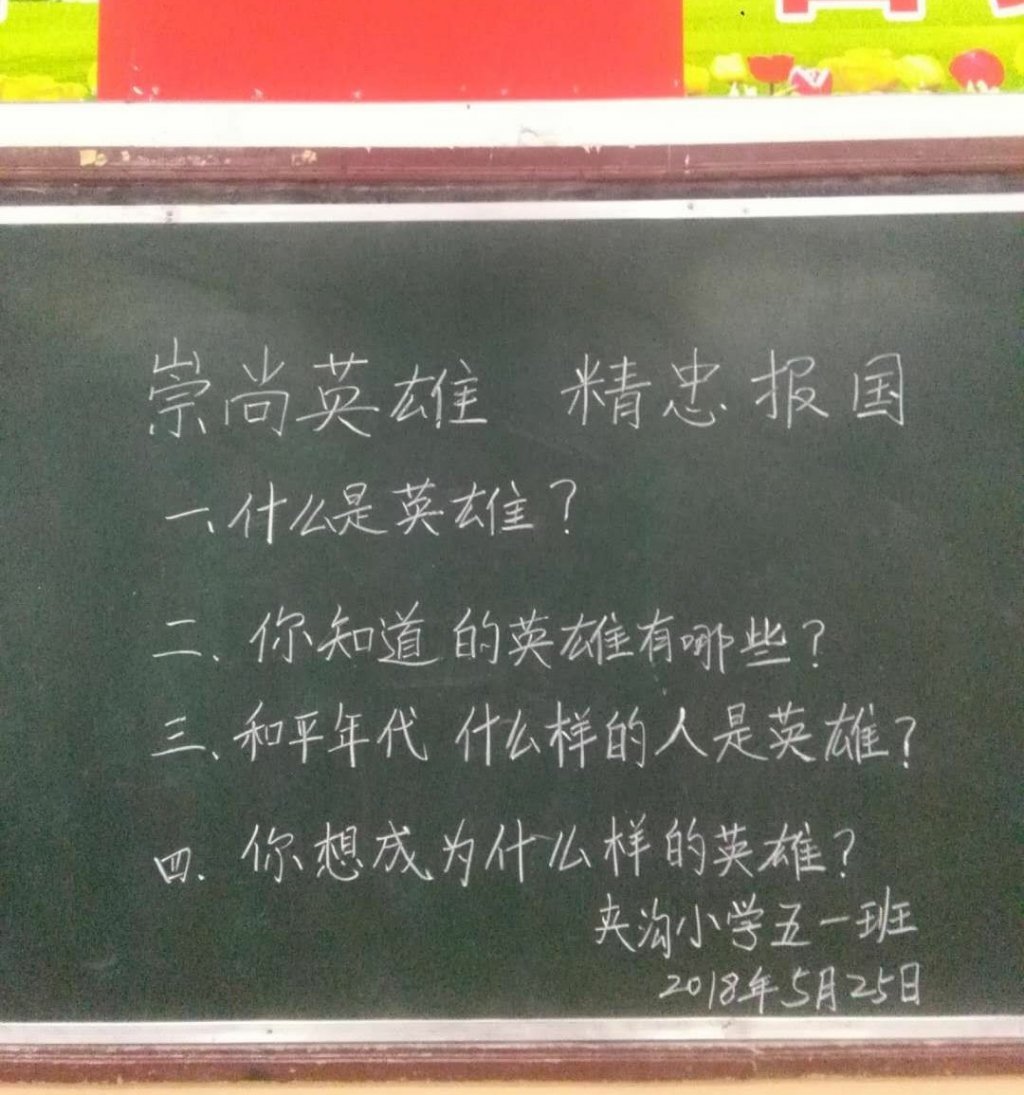 崇尚英雄 精忠报国
一、什么是英雄？
二、你知道的英雄有哪些？
三、和平年代 什么样的人是英雄？
四、你想成为什么样的英雄？
夹沟小学五一班
2018年5月25日